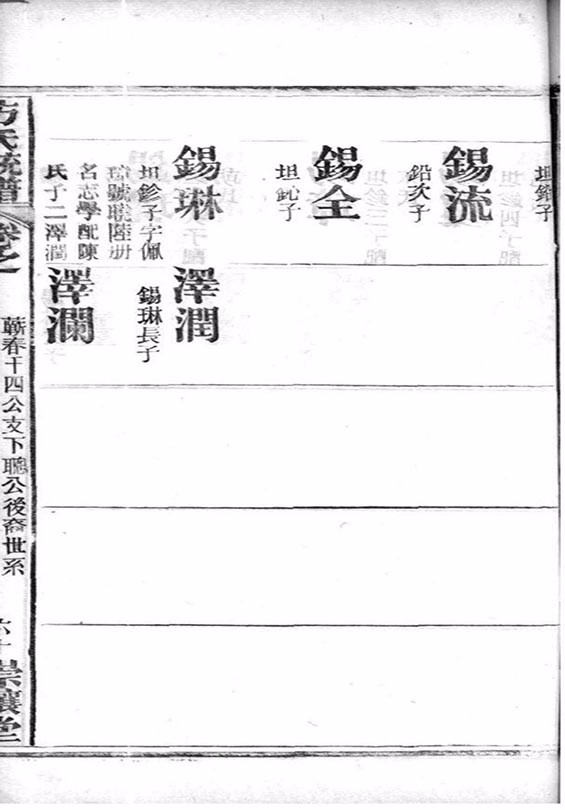 坦鉁子
錫流
鉛次子
錫全
坦鈊子
錫琳
坦鉁子字佩
琼號聫陞册
名志學配陳
氏子二澤潤
澤潤
錫琳長子
澤瀾
方氏統譜
卷之
蘄春十四公支下聰公後裔世系
六十
崇讓堂